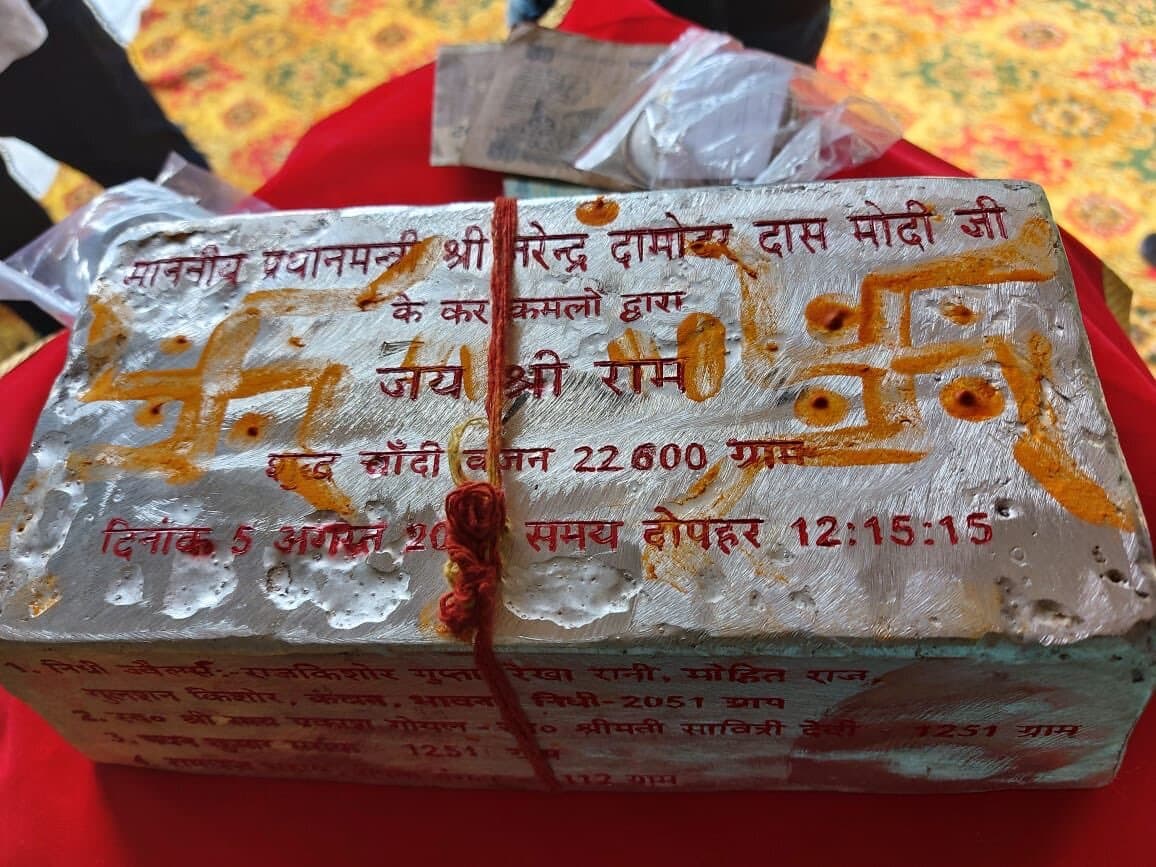 माननीय प्रधानमन्त्री श्री नरेन्द्र दामोदर दास मोदी जी
के कर कमलों द्वारा
जय श्री राम
शुद्ध चाँदी वजन 22600 ग्राम
दिनांक 5 अगस्त 20 समय दोपहर 12:15:15
1. निधी ज्वैलर्स:- राजकिशोर गुप्ता रेखा रानी, मोहित राज,
गुलशन किशोर, कंचन, भावना निधी-2051 ग्राम
2. स्व० श्री प्रकाश गोयल श्रीमती सावित्री देवी 1251 ग्राम
3. 1251
4. 112 ग्राम